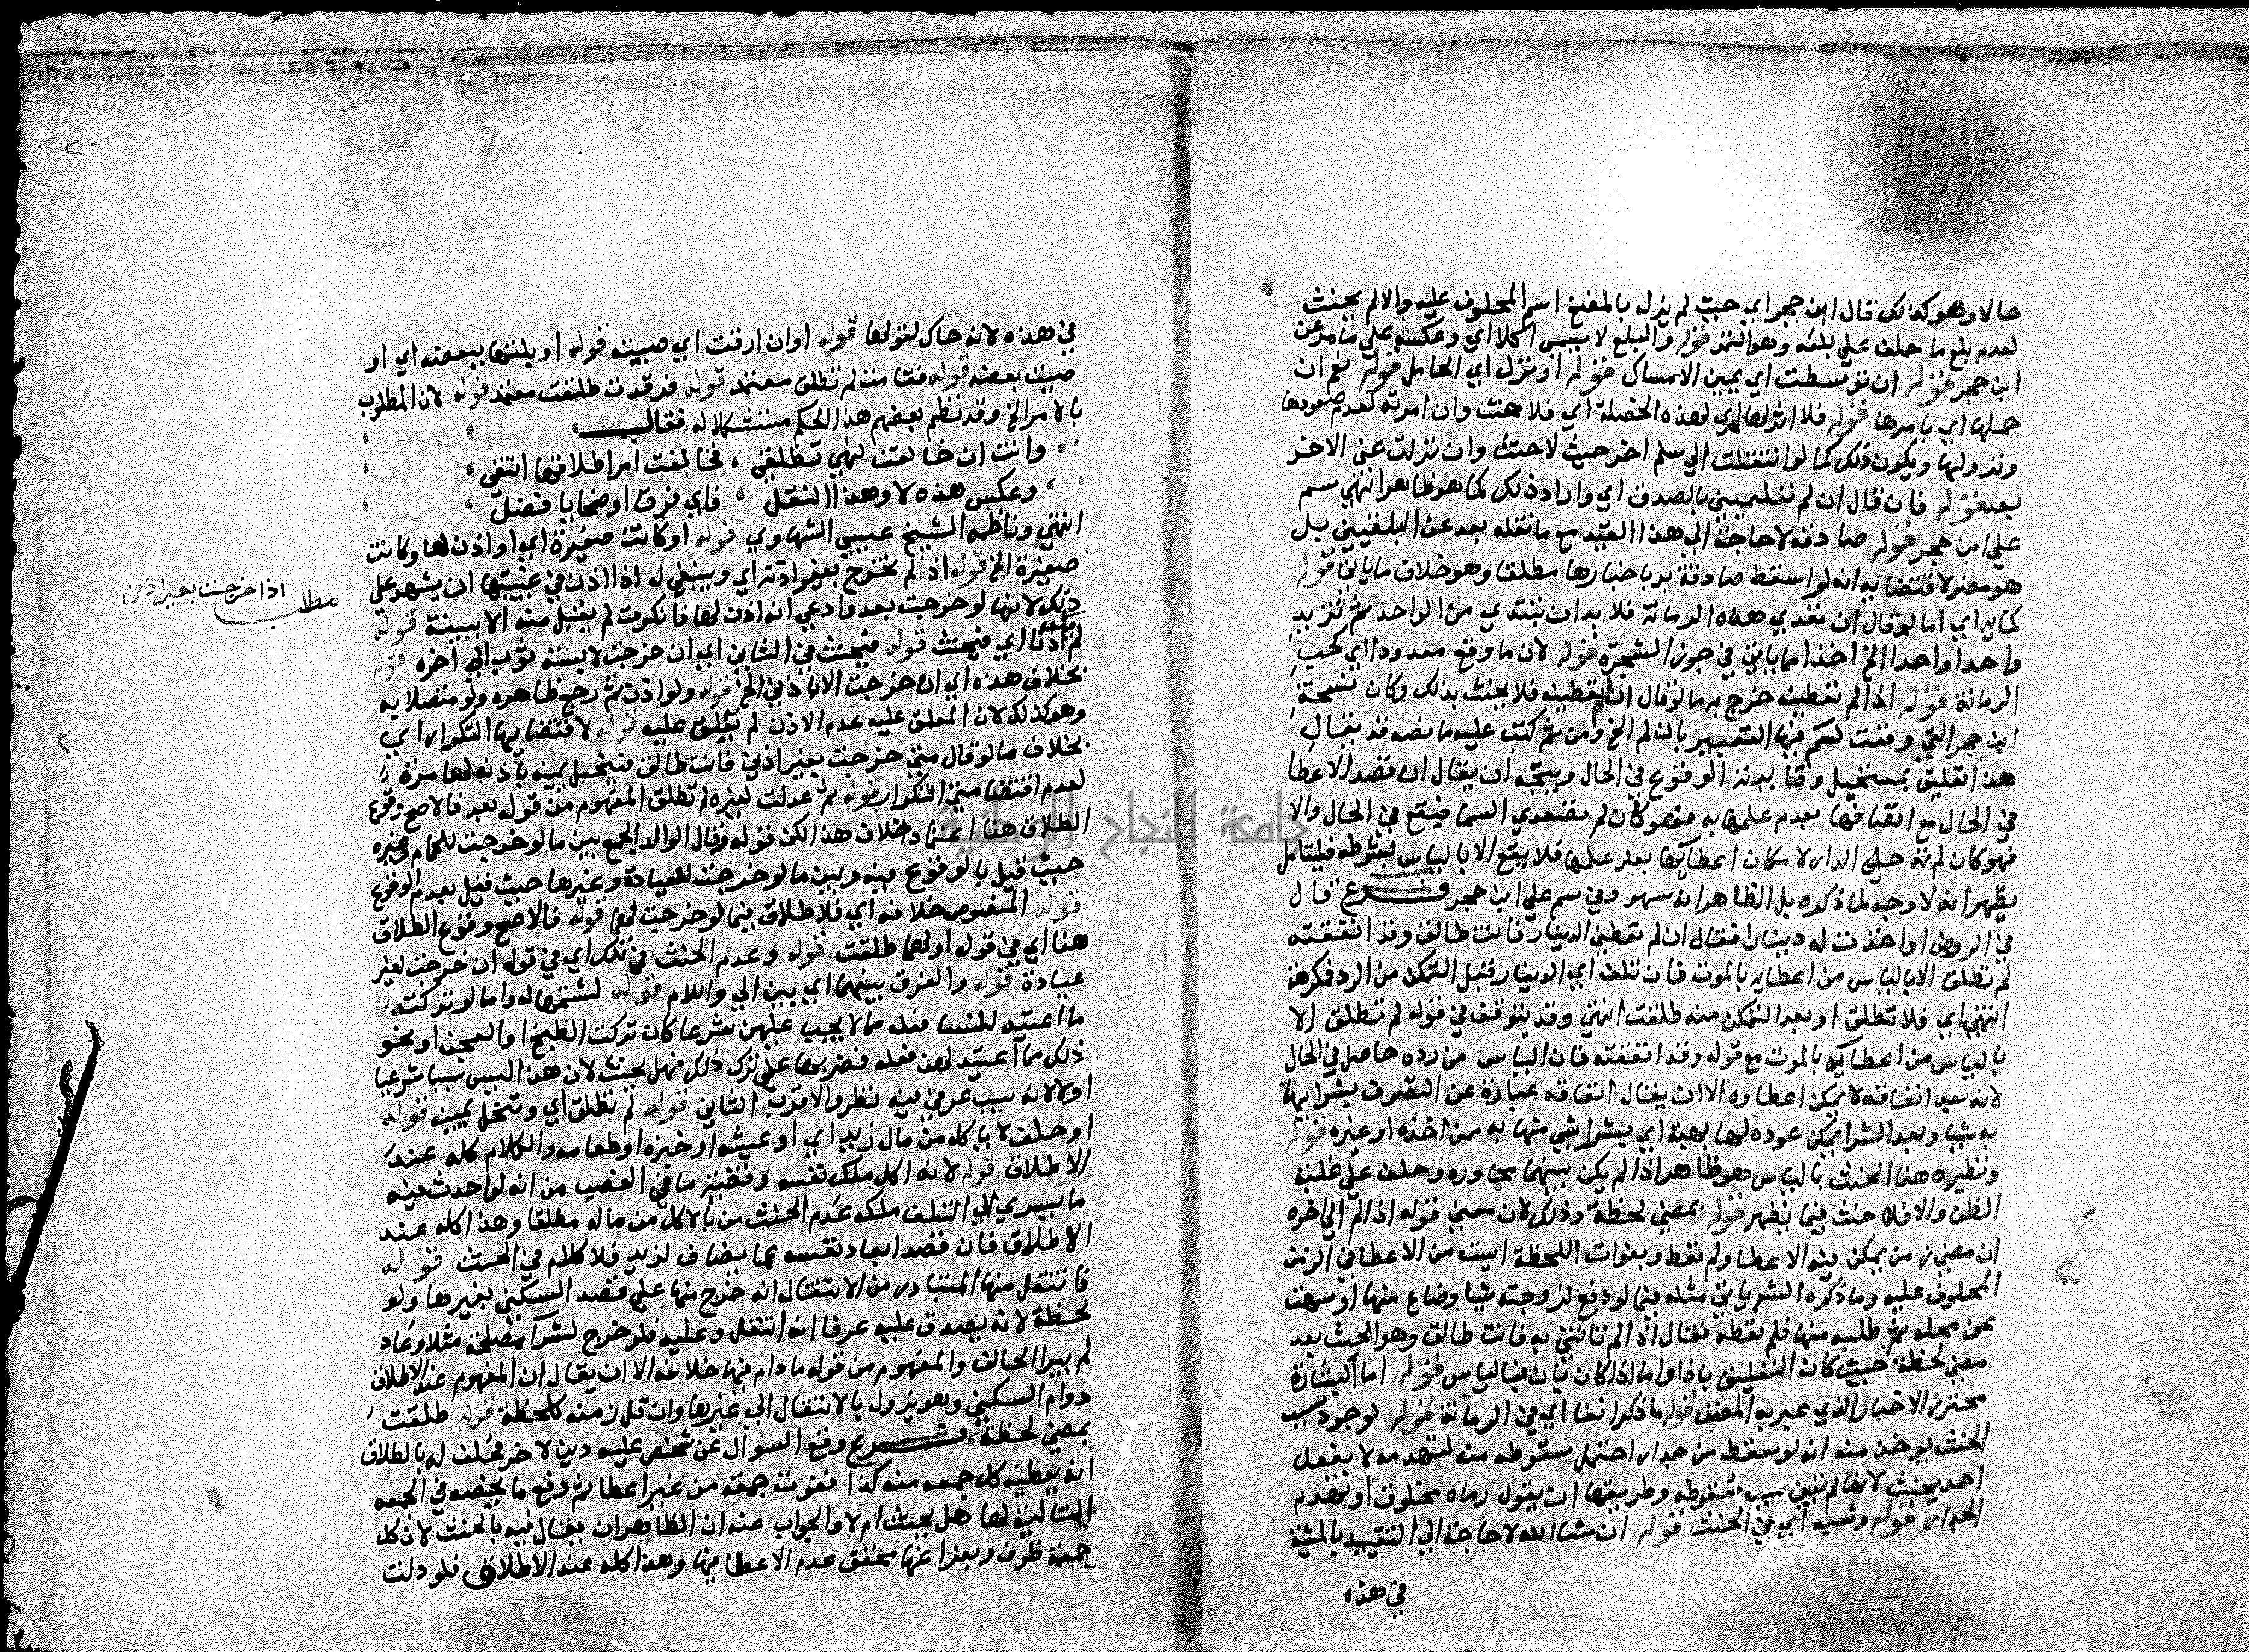 حالا وهو كذلك قال ابن حجر اي حيث لم يزل بالمضغ اسم المحلوف عليه والا لم يحنث
لعدم بلع ما حلف على بلعه وهو التمر قوله والبلع لا يسمى اكلا اي وعكسه على ما مر عن
ابن حجر قوله ان توسطت اي يمين الامساك قوله او نزل اي الحامل قوله نعم ان
حملها اي بامرها قوله فلا اثر لها اي لهذه الخصلة اي فلا حنث وان امرته لعدم صعودها
ونزولها ويكون ذلك كما لو انتقلت الي سلم اخر حيث لا حنث وان نزلت عن الاخر
بعد قوله فان قال ان لم تعلميني بالصدق اي واراد ذلك كما هو ظاهر انتهي سم
علي ابن حجر قوله صادقة لا حاجة الي هذا القيد مع ما نقله بعد عن البلقيني بل
هو مضر لاقتضايه انه لو اسقط صادقة بر باخبارها مطلقا وهو خلاف ما ياتي قوله
كما ير اي اما لو قال ان تعدي هذه الرمانة فلا بد ان تبتدي من الواحد ثم تزيد
واحدا واحدا الخ اخذا مما ياتي في جوز الشجرة قوله لان ما وقع معدودا اي كحب
الرمانة قوله اذا لم تعطينه خرج به ما لو قال ان لم تعطينه فلا يحنث بذلك وكان نسخة
ابن حجر التي وقعت لسم فيها التعبير بان لم الخ ومن ثم كتب عليه ما نصه قد يقال
هذا تعليق بمستحيل وقتا بدنه الوقوع في الحال ويتجه ان يقال ان قصد الاعطا
في الحال مع اتفاقها بعدم علمها به فهو كان لم تصعدي السما فيقع في الحال والا
فهو كان لم تدخلي الدار لامكان اعطايها بعد علمها فلا يقع الا بالياس بشرطه فليتامل
يظهر انه لا وجه لما ذكره بل الظاهر انه سهو وفي سم علي ابن حجر فرع قال
في الروض او اخذت له دينارا فقال ان لم تعطيني الدينار فانت طالق وقد انفقته
لم تطلق الا بالياس من اعطايه بالموت فان تلف اي الدينار قبل التمكن من الرد فمكرهة
انتهي اي فلا تطلق او بعد التمكن منه طلقت انتهي وقد يتوقف في قوله لم تطلق الا
بالياس من اعطايه بالموت مع قوله وقد انفقته فان الياس من رده حاصل في الحال
لانه بعد انفاقه لا يمكن اعطاوه الا ان يقال انفاقه عبارة عن التصرف بشرايها
به شيا وبعد الشرا يمكن عوده لها بهبة اي بشرا شي منها به ممن اخذه او غيره قوله
ونظيره هنا الحنث بالياس هو ظاهر اذا لم يكن بينهما محاوره وحلف علي غلبة
الظن والا فلا حنث فيما يظهر قوله بمضي لحظة وذلك لان معني قوله اذا لم الي اخره
ان مضي زمن يمكن فيه الاعطا ولم تعط وبفوات اللحظة ايست من الاعطا في الزمن
المحلوف عليه وما ذكره الشر ياتي مثله فيما لو دفع لزوجته شيا وضاع منها او سرقت
من محله ثم طلبه منها فلم تعطه فقال اذا لم تاتني به فانت طالق وهو الحنث بعد
مضي لحظة حيث كان التعليق باذا واما اذا كان بان فبالياس قوله اما البشارة
محترز الاخبار الذي عبر به المصنف قوله ما ذكر انفا اي في الرمانة قوله لوجود سبب
الحنث يوخذ منه انه لو سقط من جدار احتمل سقوطه منه لتهدمه لا بفعل
احد يحنث لانها لم تبين سبب سقوطه وطريقها ان تقول رماه مخلوق او تهدم
الجدار قوله وشبهه اي في الحنث قوله ان شا الله لا حاجة الي التقييد بالمشية
في هذه
في هذه لانه حاك لقولها قوله او ان ارقت اي صبيته قوله او بلعتها ببعضه اي او
صببت بعضه قوله فقامت لم تطلق معتمد قوله فرقدت طلقت معتمد قوله لان المطلوب
بالامر الخ وقد نظم بعضهم هذا الحكم مستشكلا له فقال
وانت ان خالفت نهيي تطلقي ، فخالفت امرا طلاقها انتفي ،
وعكس هذه لا وهذا النقل ، فاي فرق اوضحا يا فضل
انتهي وناظمه الشيخ عيسي الشهاوي قوله او كانت صغيرة اي او اذن لها وكانت
صغيرة الخ قوله اذ لم تخرج بغير اذنه اي وينبغي له اذا اذن في غيبتها ان يشهد علي
ذلك لانها لو خرجت بعد وادعي انه اذن لها فانكرت لم يقبل منه الا ببينة قوله
ثم اذنا اي فيحنث قوله فيحنث في الثاني اي ان خرجت لابسة ثوب الي اخره قوله
بخلاف هذه اي ان خرجت الا باذني الخ قوله ولو اذن ثم رجع ظاهره ولو متصلا به
وهو كذلك لان المعلق عليه عدم الاذن لم يعلق عليه قوله لاقتضايها التكرار اي
بخلاف ما لو قال متي خرجت بغير اذني فانت طالق فتنحل يمينه باذنه لها مرة
لعدم اقتضا متي التكرار قوله ثم عدلت لغيره لم تطلق المفهوم من قوله بعد فالاصح وقوع
الطلاق هنا اعتماد خلاف هذا لكن قوله وقال الوالد الجمع بين ما لو خرجت للحمام وغيره
حيث قيل بالوقوع فيه وبين ما لو خرجت للعيادة وغيرها حيث قيل بعدم الوقوع
قوله المنصوص خلافه اي فلا طلاق فيما لو خرجت لهما قوله فالاصح وقوع الطلاق
هنا اي في قوله اولهما طلقت قوله وعدم الحنث في تلك اي في قوله ان خرجت لغير
عيادة قوله والفرق بينهما اي بين الي واللام قوله لشتمها له واما لو تركت
ما اعتيد للنسا فعله مما لا يجب عليهن شرعا كان تركت الطبخ او العجن او نحو
ذلك مما اعتيد لهن فعله فضربها علي ترك ذلك فهل يحنث لان هذا ليس سببا شرعيا
اولا لانه سبب عرفي فيه نظر والاقرب الثاني قوله لم تطلق اي وتنحل يمينه قوله
او حلف لا ياكل من مال زيد اي او عيشه او خبزه او طعامه والكلام كله عند
الاطلاق قوله لانه اكل ملك نفسه وقضية ما في الغصب من انه لو احدث فيه
ما يسري الي التلف ملكه عدم الحنث من بالاكل من ماله مطلقا وهذا كله عند
الاطلاق فان قصد ابعاد نفسه عما يضاف لزيد فلا كلام في الحنث قوله
فانتقل منها المتبادر من الانتقال انه خرج منها علي قصد السكني بغيرها ولو
لحظة لانه يصدق عليه عرفا انه انتقل وعليه فلو خرج لشرا مصلحة مثلا وعاد
لم يبرا الحالف والمفهوم من قوله ما دام فيها خلافه الا ان يقال ان المفهوم عند الاطلاق
دوام السكني وهو يزول بالانتقال الي غيرها وان قل زمنه كلحظة قوله طلقت
بمضي لحظة، فرع وقع السوال عن شخص عليه دين لاخر فحلف له بالطلاق
انه يعطيه كل جمعه منه كذا ففوت جمعة من غير اعطا ثم دفع ما يخصه في الجمعه
التالية لها هل يحنث ام لا والجواب عنه ان الظاهر ان يقال فيه بالحنث لان كل
جمعة ظرف وبفراغها تحقق عدم الاعطا فيها وهذا كله عند الاطلاق فلو دلت
مطلب اذا خرجت بغير اذني
جامعة النجاح الوطنية